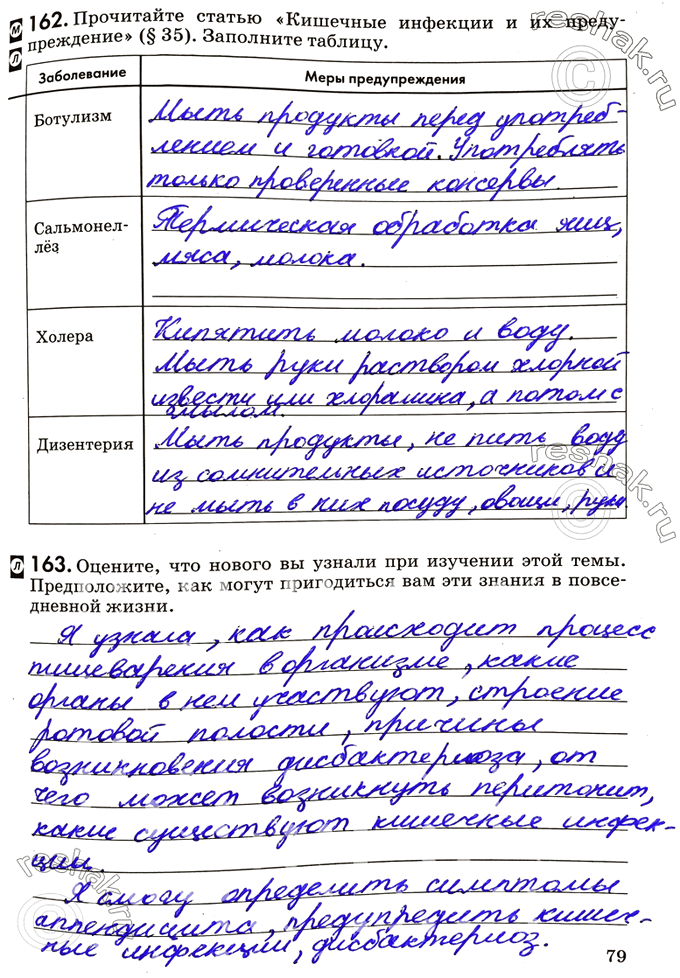 М 162. Прочитайте статью «Кишечные инфекции и их преду-
Л преждение» (§ 35). Заполните таблицу.
Заболевание Меры предупреждения
Ботулизм Мыть продукты перед употреб-
лением и готовкой. Употреблять
только проверенные консервы.
Сальмонел- Термическая обработка яиц,
лёз мяса, молока.
Холера Кипятить молоко и воду.
Мыть руки раствором хлорной
извести или хлорамина, а потом с
мылом.
Дизентерия Мыть продукты, не пить воду
из сомнительных источников и
не мыть в них посуду, овощи, руки.
Л 163. Оцените, что нового вы узнали при изучении этой темы.
Предположите, как могут пригодиться вам эти знания в повсе-
дневной жизни.
Я узнала, как происходит процесс
пищеварения в организме, какие
органы в нем участвуют, строение
ротовой полости, причины
возникновения дисбактериоза, от
чего может возникнуть перитонит,
какие существуют кишечные инфек-
ции.
Я смогу определить симптомы
аппендицита, предупредить кишеч-
ные инфекции, дисбактериоз.
79
reshak.ru
reshak.ru
reshak.ru